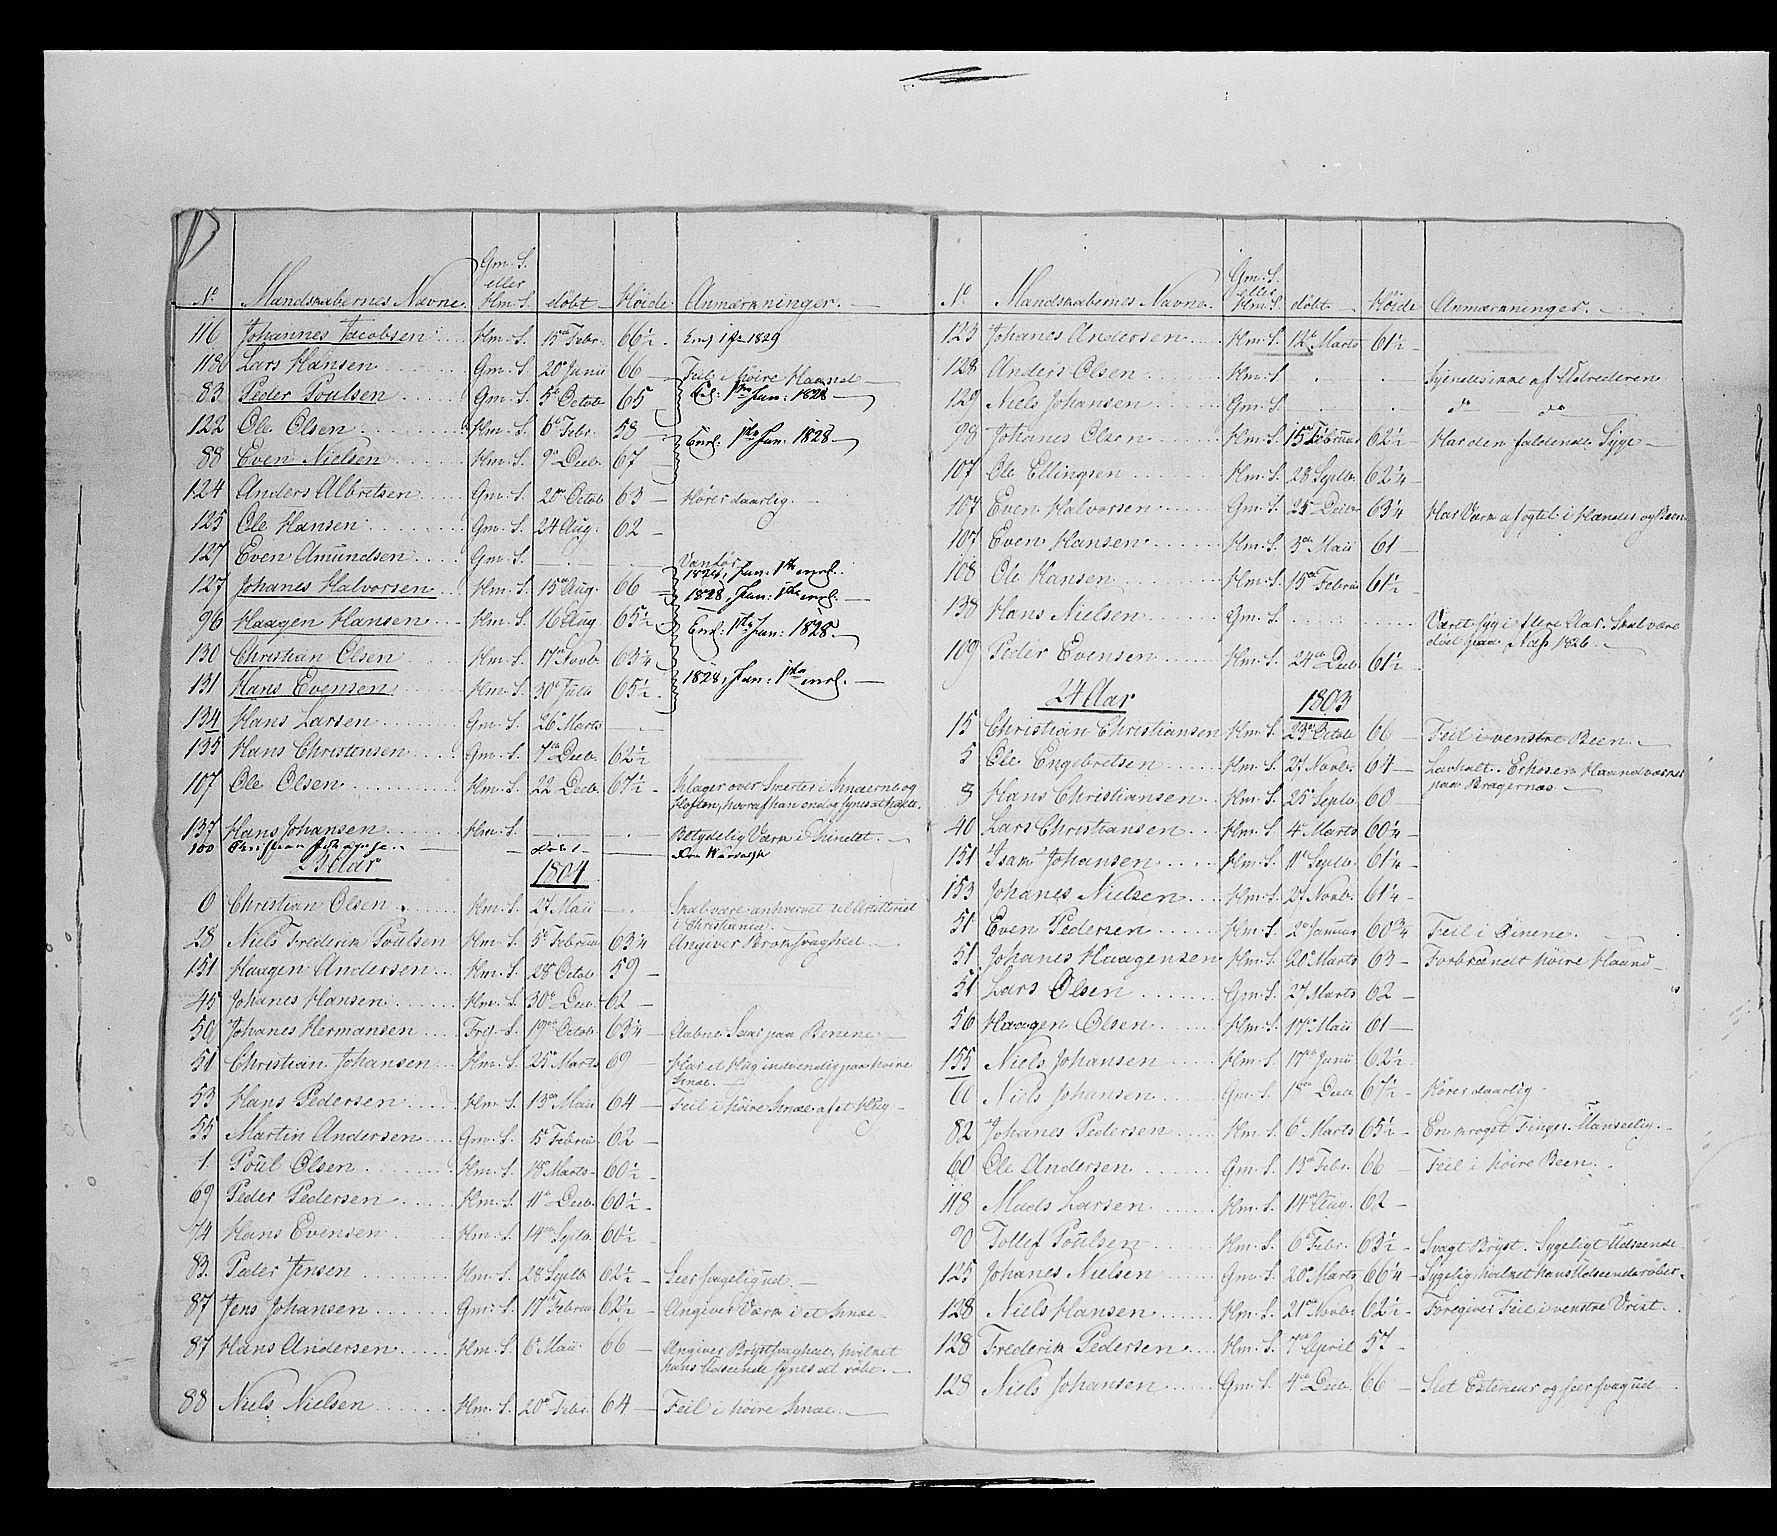 No Mandskabernes Navne Gm. S. eller Hm. S. döbt Höide Anmærkninger.
116 Johannes Jacobsen Hm. S. 15de Febr. 66½
118 Lars Hansen Gm. S. 20de Junii 66 Feil i höire Haand
83 Peder Poulsen Gm. S. 5te Octob 65 1828
122 Ole Olsen Hm. S. 6te Febr. 58 Enrl: Jan: 1828
88 Even Nielsen Hm. S. 9de Decb. 67
124 Anders Albretsen Gm. S. 20de Octob 63 Hörer daarlig.
125 Ole Hansen Gm. S. 24 Aug. 62
127 Even Amundsen Gm. S. Vanför
127 Johanes Halvorsen Hm. S. 15de Aug. 66 1828, Jan: 1ste enrl.
96 Haagen Hansen Hm. S. 16 Aug 65½ Enrl: 1ste Jan: 1828.
130 Christian Olsen Hm. S. 17de Novb. 63¼
131 Hans Evensen Hm. S. 30te Julii 65½ 1828, Jan: 1ste enrl.
134 Hans Larsen Gm. S. 26de Marts
135 Hans Christensen Gm. S. 7de Decb. 62½
107 Ole Olsen Hm. S. 22 Decb. 67½ Klager over Smerter i Knæerne og
Hoften, hvoraf han endog synes at halte.
137 Hans Johansen Hm. S. Betydelig Værk i Lindet.
100 Christian
23 Aar 1804
0 Christian Olsen Hm. S. 27 Maii Skal være anhvervet til Artilleriet
i Christiania.
28 Niels Frederik Poulsen Hm. S. 5te Februar 63¼ Angiver Broksvaghed.
151 Haagen Andersen Hm. S. 28de Octob 59
45 Johanes Hansen Hm. S. 30te Decb. 62
50 Johanes Hermansen Frif. S. 19de Octob. 63¼ Aabne Saar paa Benene
51 Christian Johansen Hm. S. 25de Marts 69 Har et Hug indvendig paa höire
Knæe.
53 Hans Pedersen Hm. S. 13de Maii 64 Feil i höire Knæe af et Hug
55 Martin Andersen Gm. S. 15de Februar 62
1. Poul Olsen Hm. S. 18de Marts 60½
69 Peder Pedersen Hm. S. 11te Decb. 60½
74 Hans Evensen Hm. S. 14de Septb. 60½
83. Peder Jensen Hm. S. 28 Septb 62½ Seer svagelig ud.
87 Jens Johansen Gm. S. 17de Februar 62½ Angiver Værk i et Knæe
87 Hans Andersen Hm. S. 6te Maii 66 Angiver Brystsvaghed, hvilket
hans Udseende synes at röbe.
88 Niels Nielsen Hm. S. 20de Febr. 64 Feil i höire Knæe.
No Mandskabernes Navne Gm. S. eller Hm. S. döbt Höide Anmærkninger.
123 Johanes Andersen Hm. S. 12te Marts 61½
128 Anders Olsen Hm. S Kjendes ikke af Udrederen
129 Niels Johansen Gm. S. do do
98 Johanes Olsen Hm. S. 15de Februar 62½ Har den faldende Syge
107 Ole Ellingsen Hm. S. 28 Septb. 62¼
107 Even Halvorsen Gm. S. 25de Decb. 63¼ Har Værk af og til i Hænder og Been
107 Even Hansen Hm. S. 3de Maii 61
108 Ole Hansen Hm. S. 15de Februar 61½
138 Hans Nielsen Gm. S. Været syg i flere Aar. Skal være
död paa 1826.
109 Peder Evensen Hm. S. 24de Decb. 61½
24 Aar 1803
15 Christian Christiansen Hm. S. 23de Octob 66 Feil i venstre Been.
5 Ole Engebretsen Hm. S. 27 Novb. 64 Lavhalt. Erhverer Haandværk
paa Bragernæs
8 Hans Christiansen Hm. S. 25de Septb. 60
40 Lars Christiansen Hm. S. 4de Marts 60¼
151 Isak Johansen Hm. S. 11te Septb. 61¼
153 Johanes Nielsen Hm. S. 27 Novb. 61¼
51 Even Pedersen Hm. S. 2de Januar 60¾ Feil i Öinene.
51 Johanes Haagensen Hm. S. 20de Marts 63 Forbrændt höire Haand
51 Lars Olsen Gm. S. 27 Marts 62
56 Haagen Olsen Hm. S. 17de Maii 61
155 Niels Johansen Hm. S. 17de Junii 62½
61 Niels Johansen Gm. S. 18de Decb. 67½ Hörer daarlig
82 Johanes Pedersen Hm. S. 6te Marts 65½ En kroget Finger. Uanseelig.
60 Ole Andersen Gm. S. 13de Febr. 66 Feil i höire Been.
118 Mads Larsen Hm. S. 14de Aug. 62
90 Tollef Poulsen Hm. S. 6te Febr. 63½ Svagt Bryst. Sygeligt Udseende
125 Johanes Nielsen Gm. S. 20de Marts 66¼ Sygelig, hvilket hans Udseende röber.
128 Niels Hansen Hm. S. 21de Novb. 62½ Foregiver Feil i venstre Vrist.
128 Frederik Pedersen Hm. S. 7de April 57
128 Niels Johansen Gm. S. 4de Decb. 66 Slet Exterieur og seer svag ud